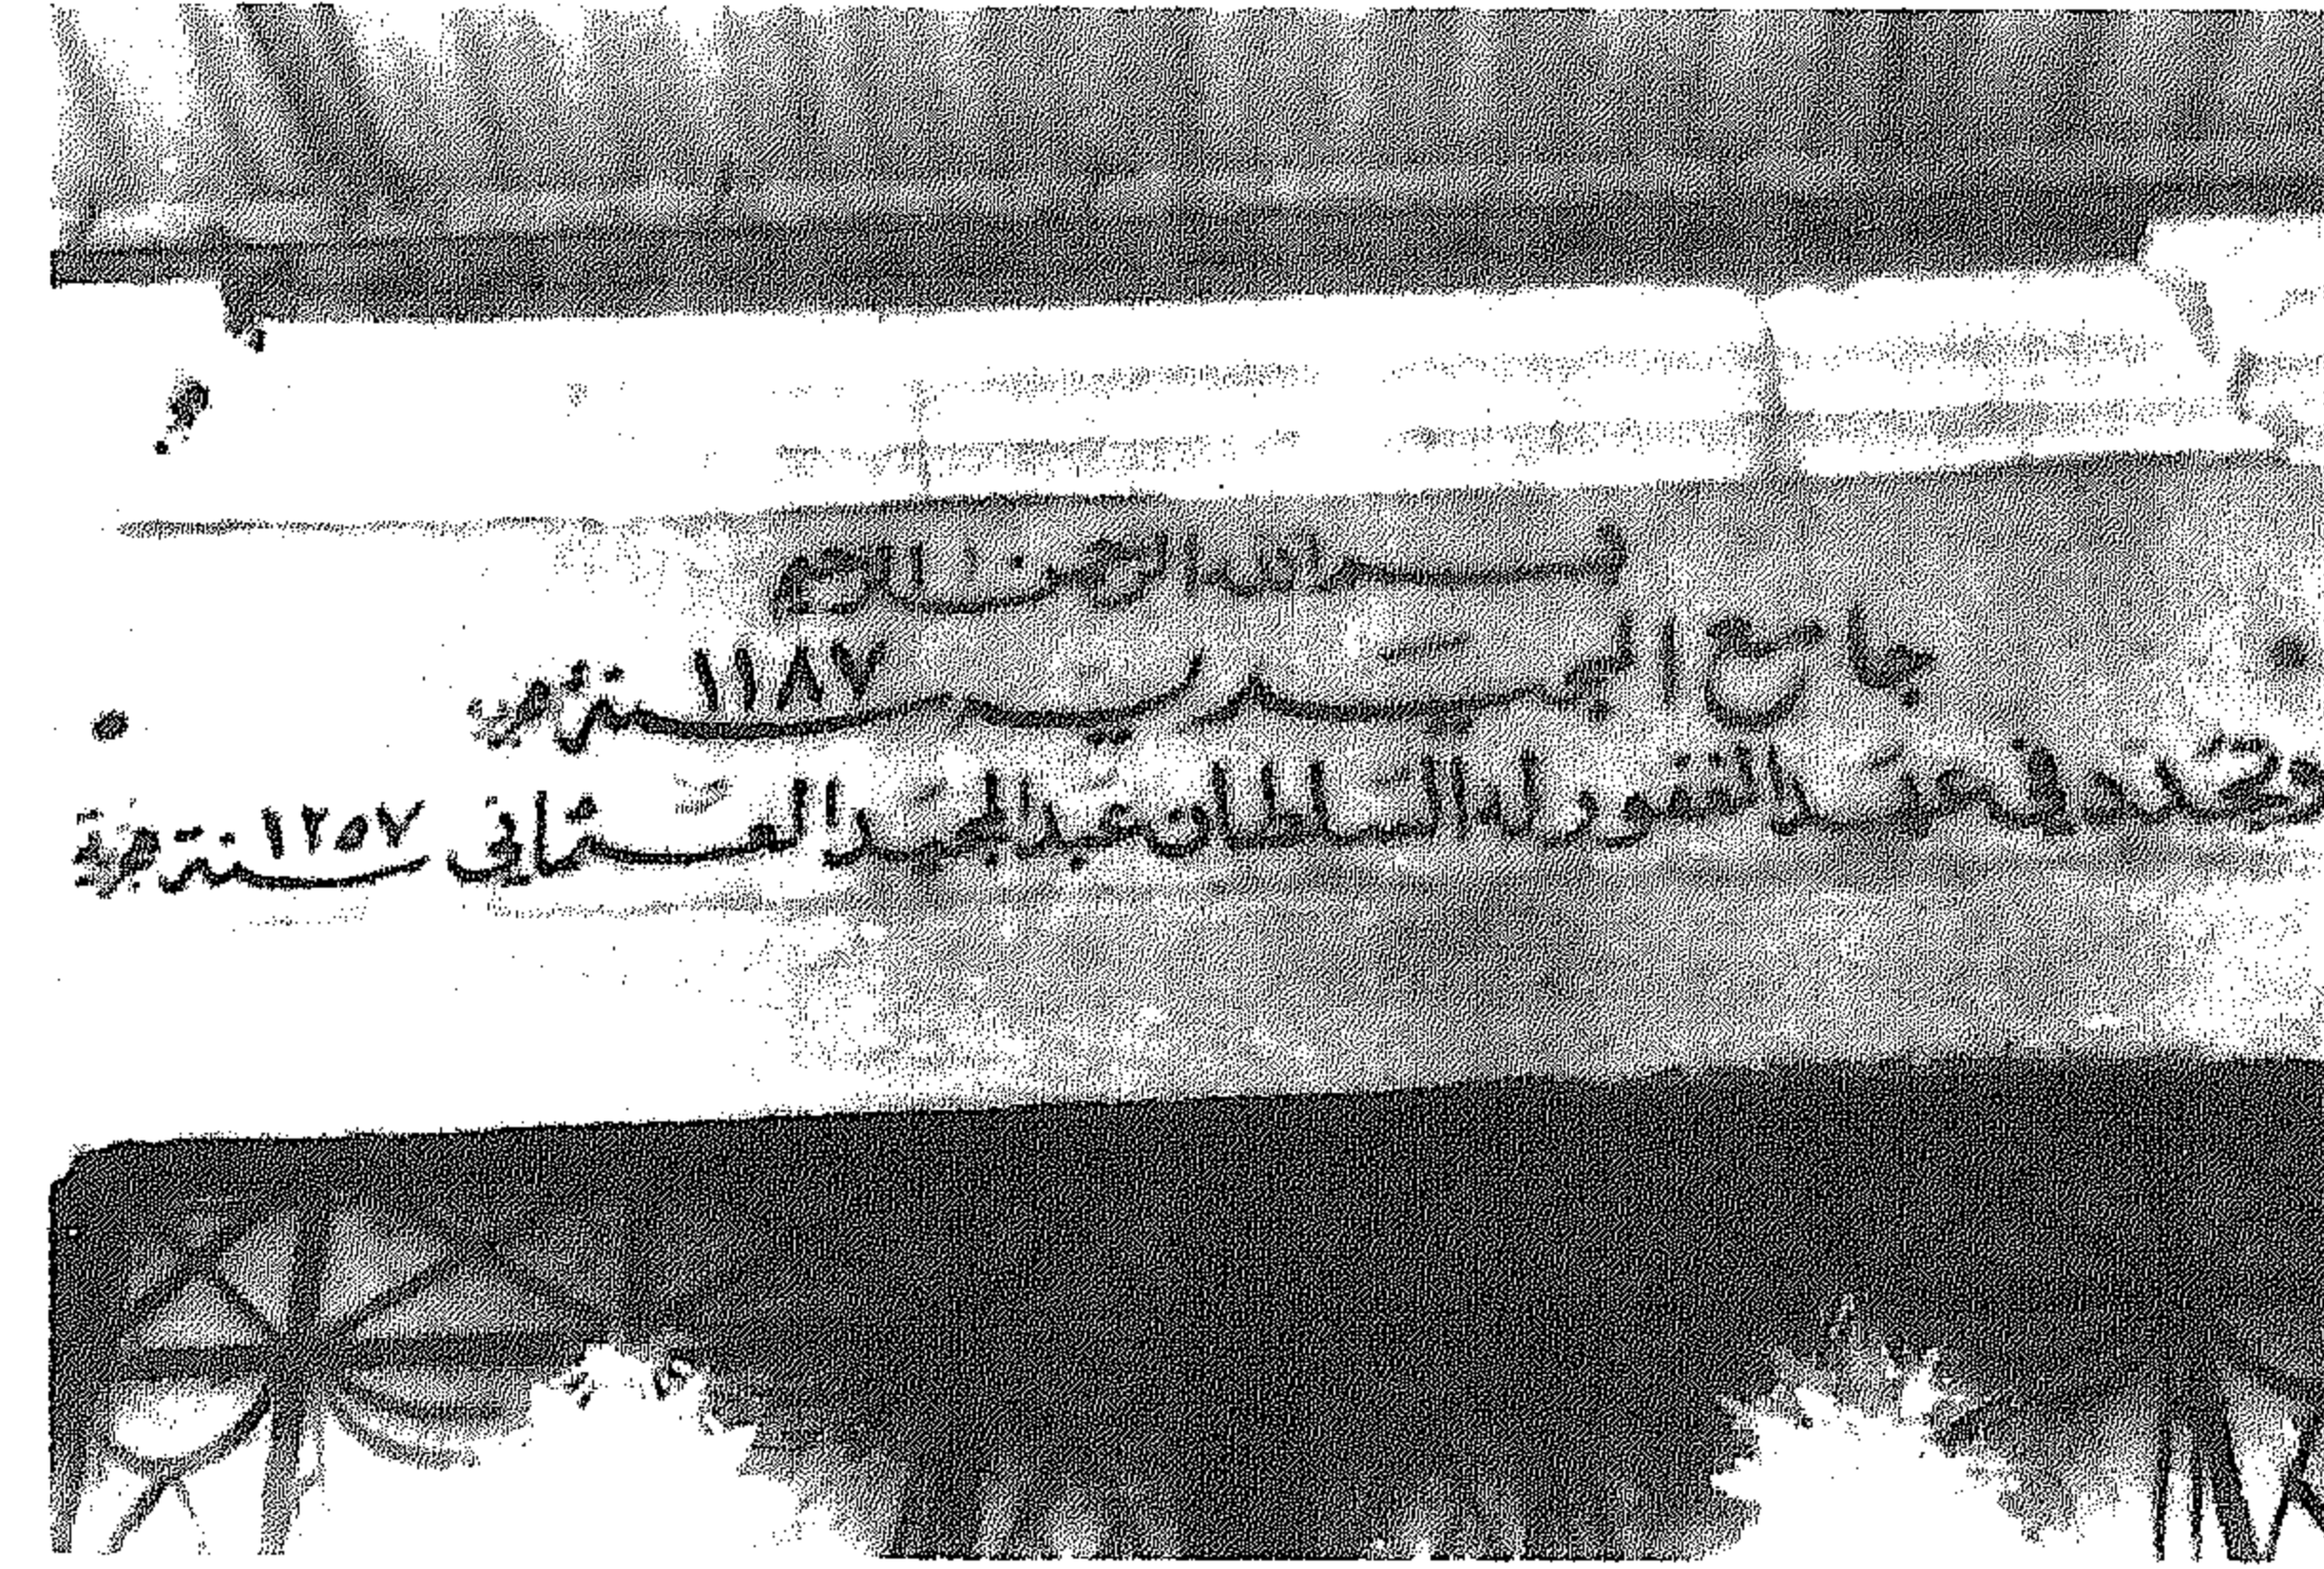 بسم الله الرحمن الرحيم
جامع سنة ١١٨٧ هجرية
وتجدد في عهد المغفور له السلطان عبد المجيد العثماني سنة ١٢٥٧ هجرية